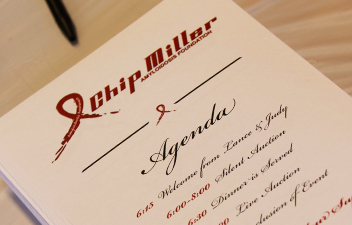 Chip Miller
AMYLOIDOSIS FOUNDATION
Agenda
6:15 Welcome from Lance & Judy
6:00-8:00 Silent Auction
6:30 Dinner is Served
Live Auction
of Event